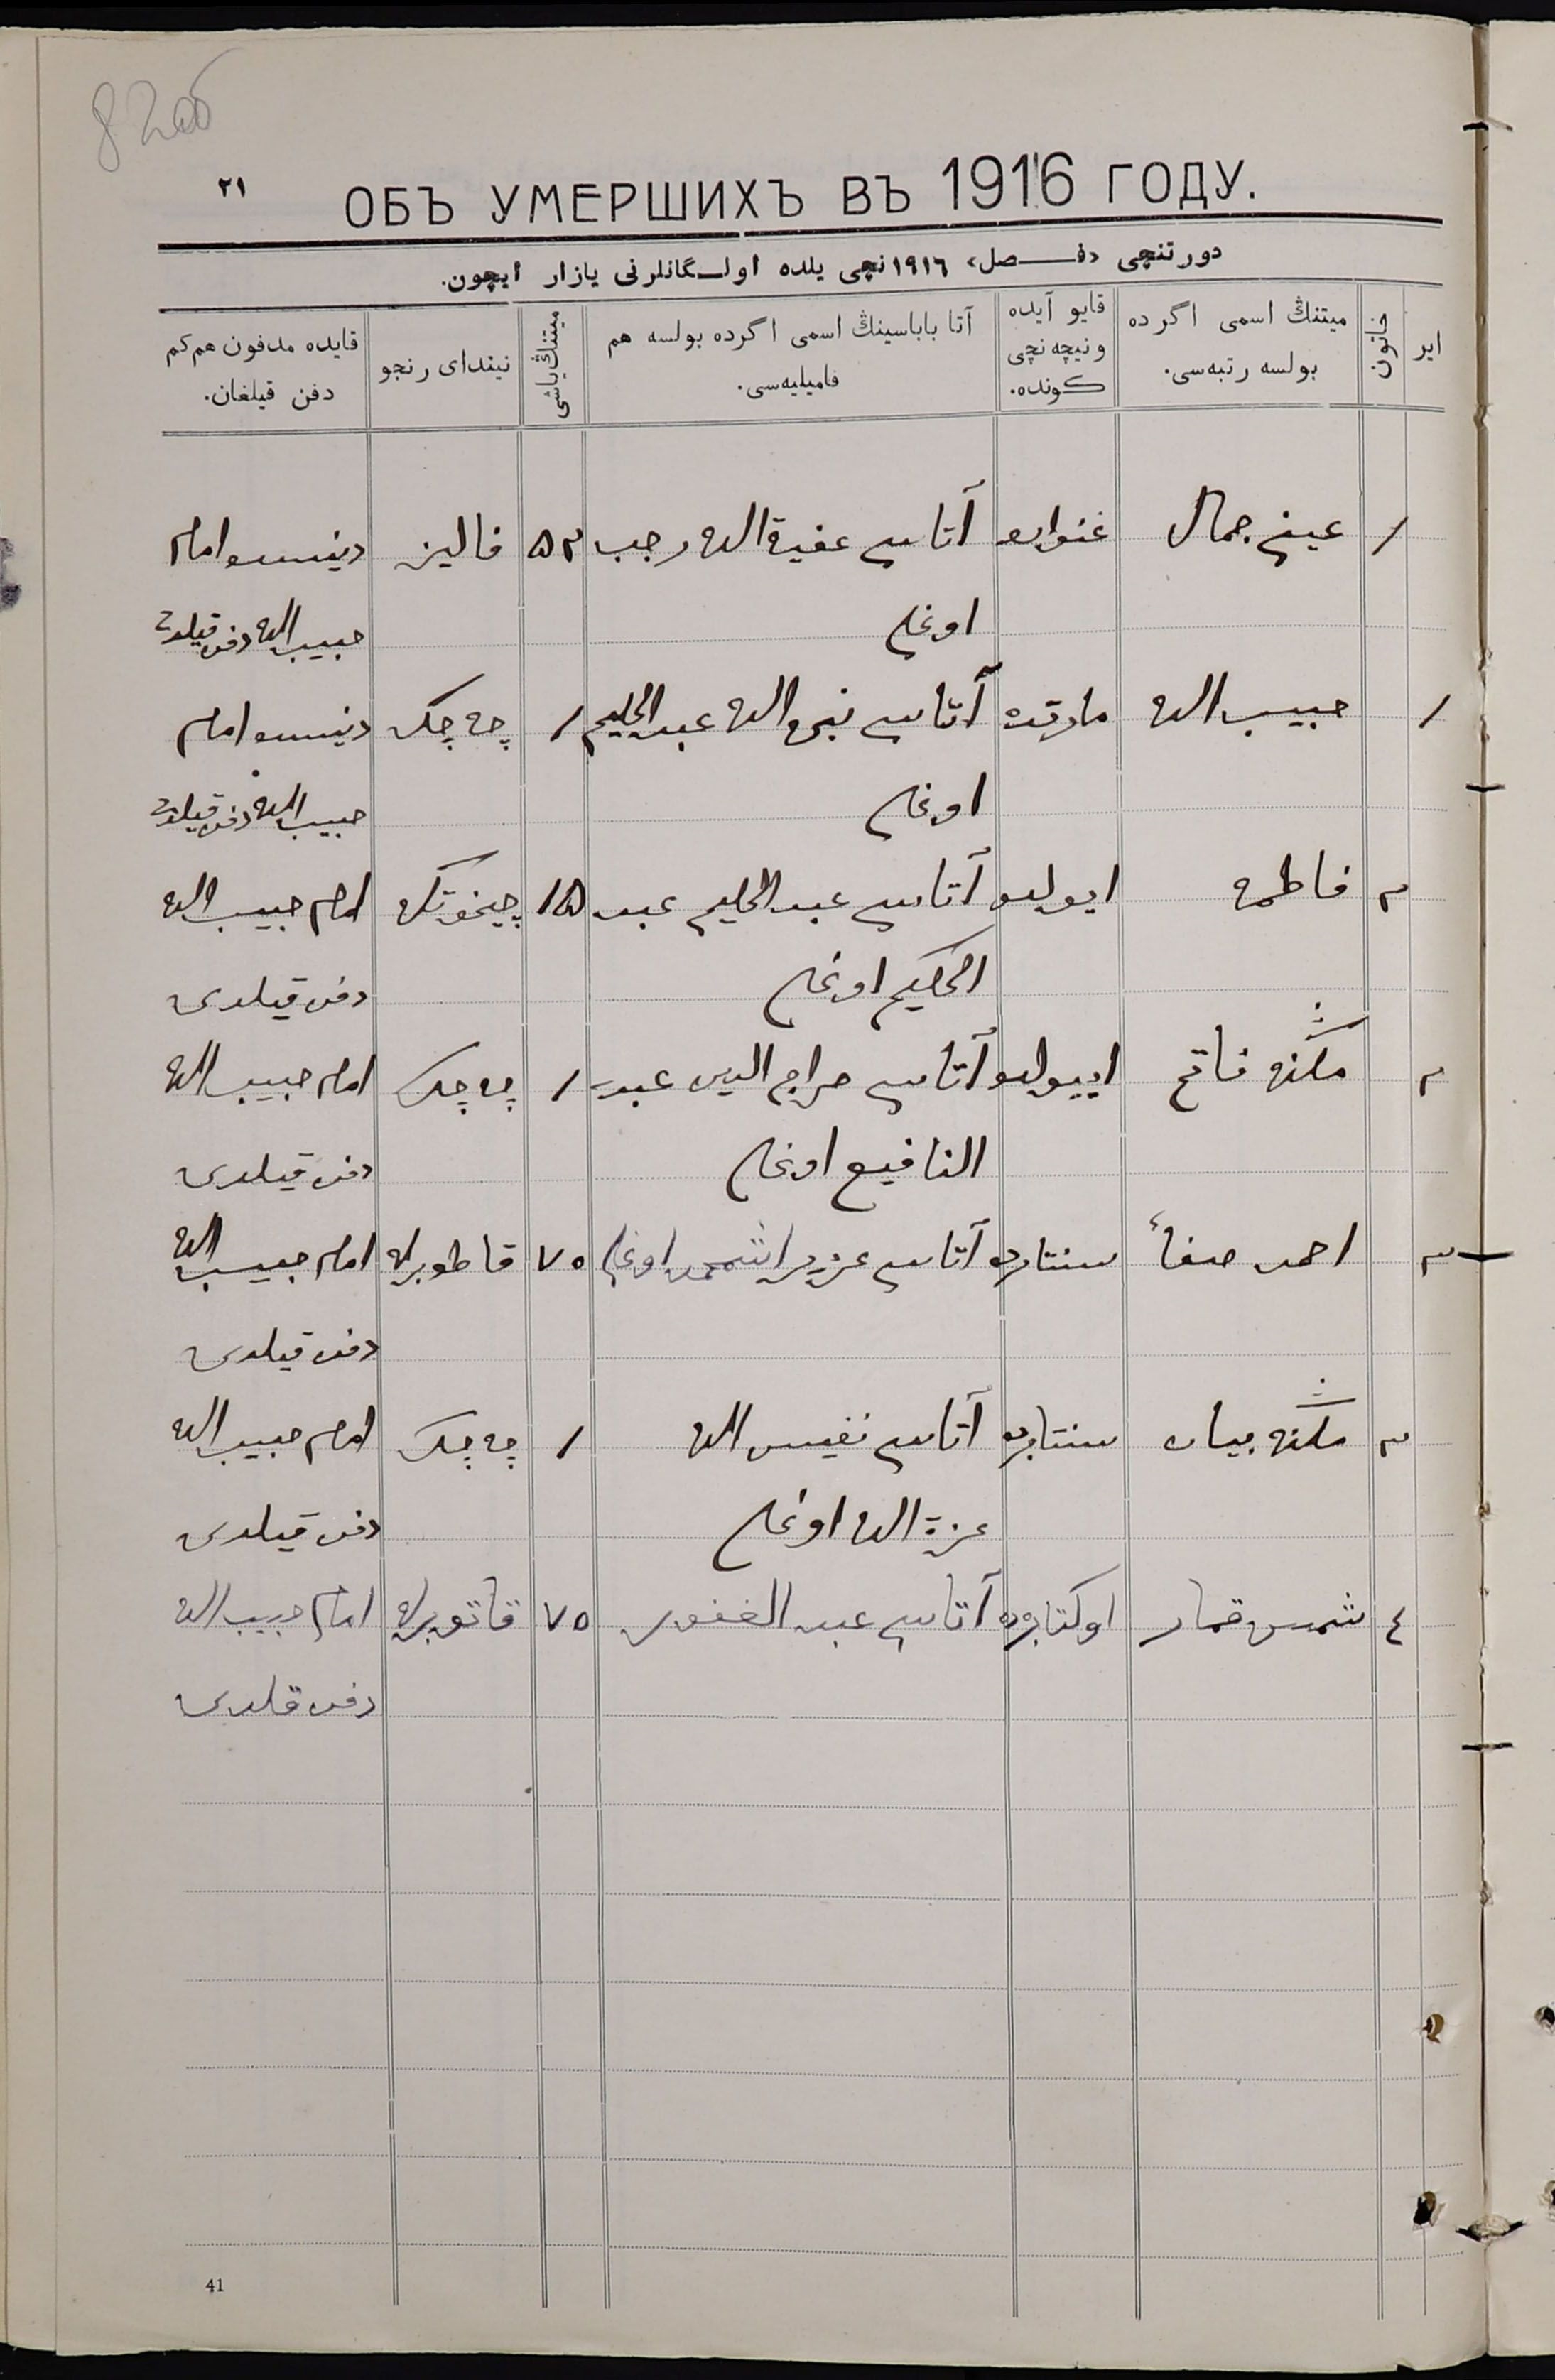 82об
٢١
ОБЪ УМЕРШИХЪ ВЪ 1916 ГОДУ.
دورتنچی «فـــصل» ١٩١٦ نچی یلده اولـگانلرنی یازار ایچون.
ایر
خاتون
میتنڭ اسمی اگرده بولسه رتبه‌سی.
قایو آیده ونیچه نچی كونده.
آتا باباسینڭ اسمی اگرده بولسه هم فامیلیه‌سی.
میتنڭ یاشی
نیندای رنجو
قایده مدفون هم كم دفن قیلغان.
١ عینی جمال غنوار آتاسی رجب ٥٢ فالیز امام
اوغلی حبیب الله دفن قیلدی
١ حبیب الله مارتده آتاسی عبد الحلیم ١ چه چك امام
اوغلی حبیب الله دفن قیلدی
٢ فاطمه ایولده آتاسی عبد الحلیم عبد ١٥ امام حبیب الله
الحكیم اوغلی دفن قیلدی
٢ فاتح اییولده آتاسی سراج الدین عبد ١ چه چك امام حبیب الله
النافیع اوغلی دفن قیلدی
٣ احمد صفا سنتابرده آتاسی اوغلی ٧٥ امام حبیب الله
دفن قیلدی
٣ سنتابرده آتاسی نفیس الله ١ چه چك امام حبیب الله
عزة الله اوغلی دفن قیلدی
٤ شمس قمار اوكتابرده آتاسی عبد الغفور ٧٥ امام حبیب الله
دفن قلدی
41